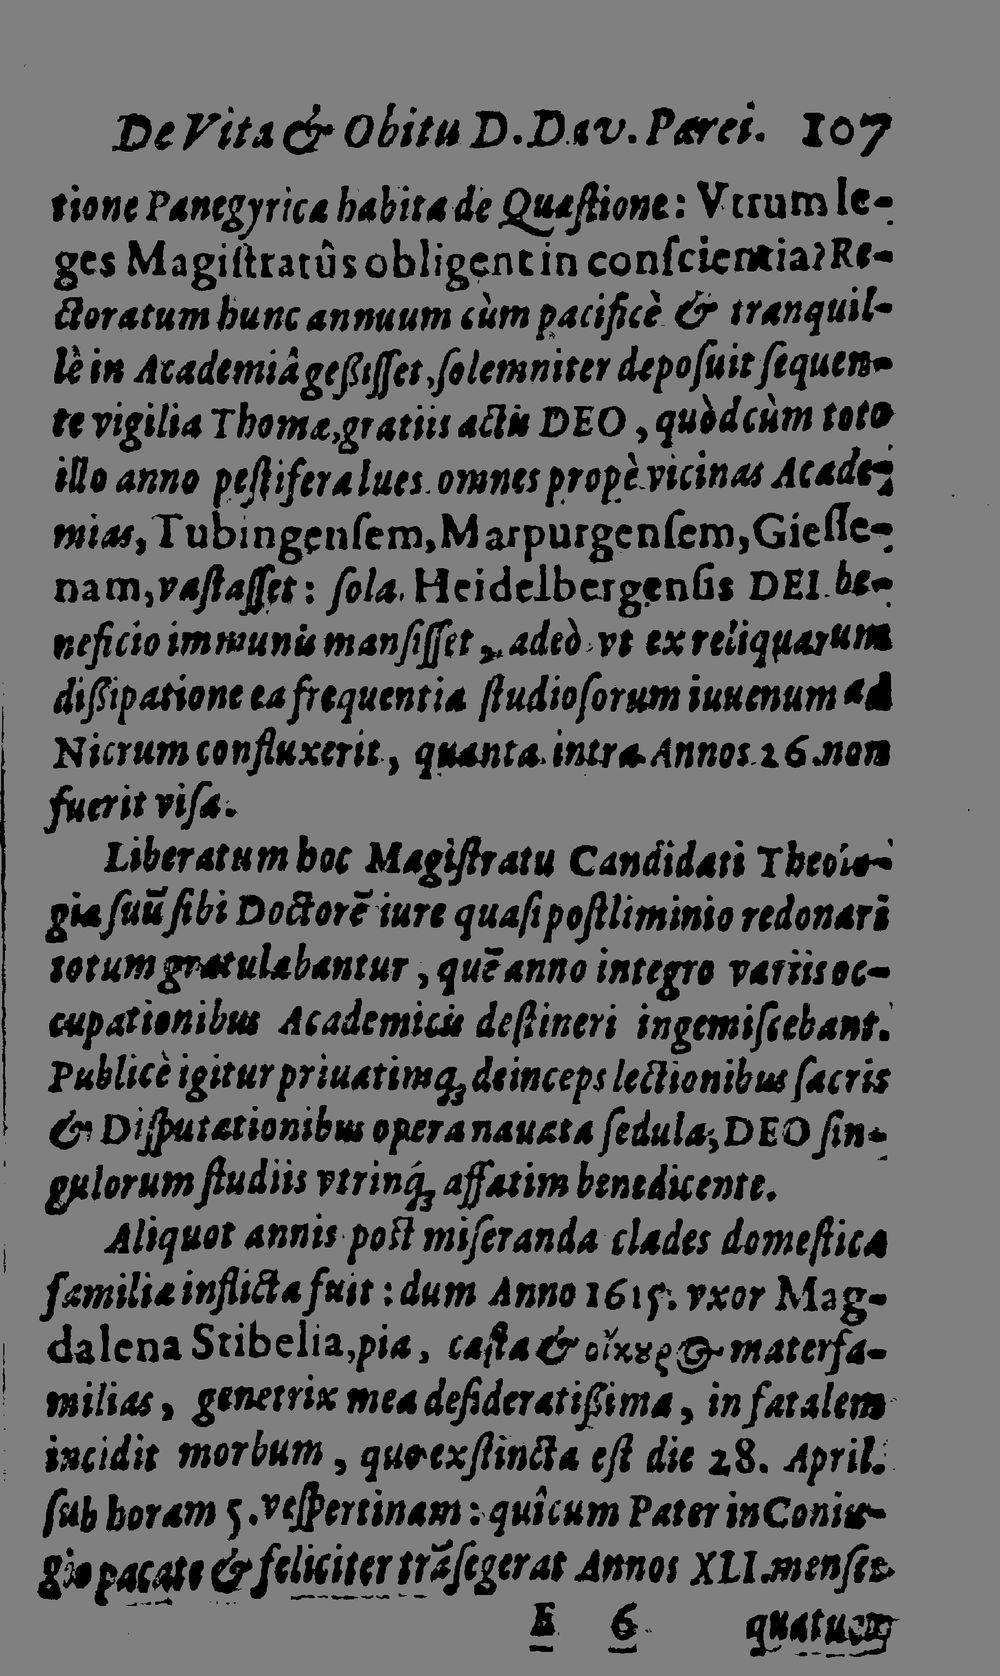 De Vita & Obitu D. Dav. Parei. 107
tione Panegyrica habita de Quæſtione: Vtrum le-
ges Magiſtratûs obligent in conſcientia? Re-
ctoratum hunc annuum cùm pacificè & tranquil-
lè in Academiâ geßiſſet, ſolemniter depoſuit ſequen-
te vigilia Thomæ, gratiis actis DEO, quòd cùm toto
illo anno peſtifera lues omnes propè vicinas Acade-
mias, Tubingenſem, Marpurgenſem, Gieſſe-
nam, vaſtaſſet: ſola Heidelbergenſis DEI be-
neficio immunis manſiſſet, adeò vt ex reliquarum
dißipatione ea frequentia ſtudioſorum iuuenum ad
Nicrum confluxerit, quanta intra Annos 26. non
fuerit viſa.
Liberatum hoc Magiſtratu Candidati Theolo-
giæ ſuū ſibi Doctorē iure quaſi poſtliminio redonari
totum gratulabantur, quē anno integro variis oc-
cupationibus Academicis deſtineri ingemiſcebant.
Publicè igitur priuatimq; deinceps lectionibus ſacris
& Diſputationibus opera nauata ſedula; DEO ſin-
gulorum ſtudiis vtrinq́; affatim benedicente.
Aliquot annis poſt miſeranda clades domeſtica
familiæ inflicta fuit: dum Anno 1615. vxor Mag-
dalena Stibelia, pia, caſta & οἴκουρος materfa-
milias, genetrix mea deſideratißima, in fatalem
incidit morbum, quo exſtincta eſt die 28. April.
ſub horam 5. veſpertinam: quîcum Pater in Coniu-
gio pacate & feliciter trāſegerat Annos XLI. menſes
E 6 quatuor